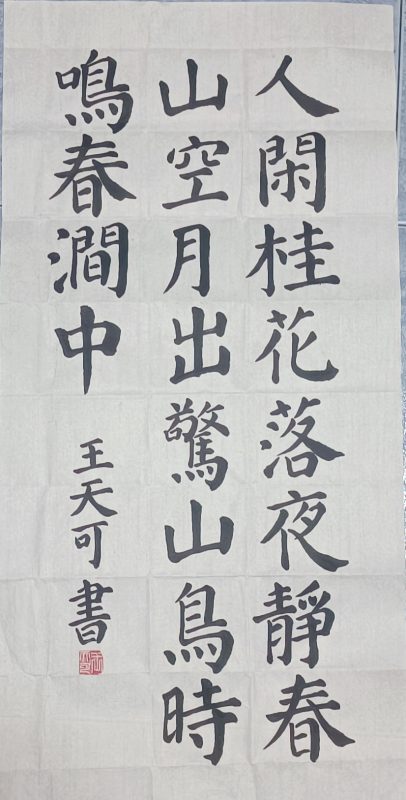 人閑桂花落夜靜春
山空月出驚山鳥時
鳴春澗中
王天可書